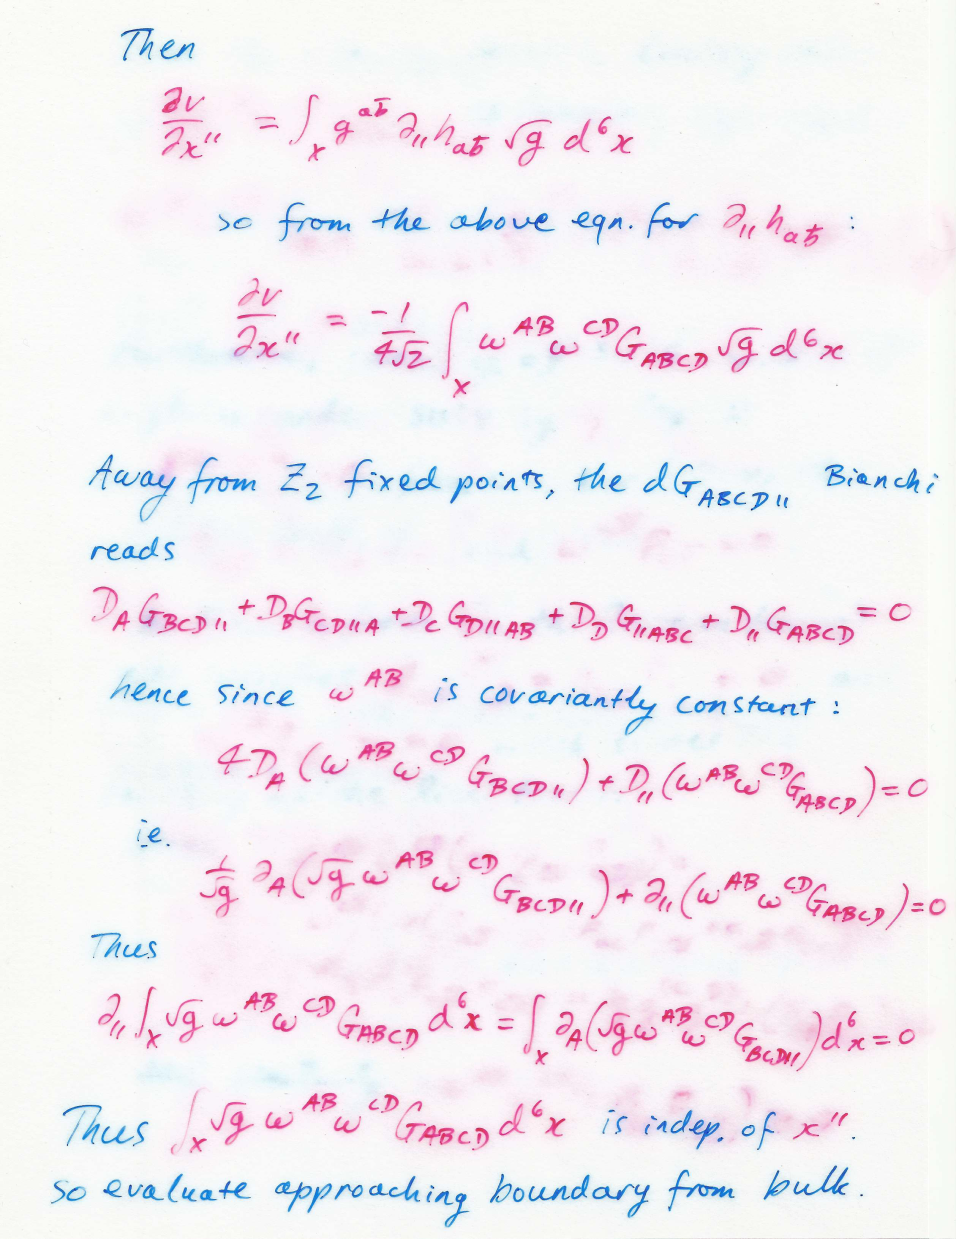 Then
∂v/∂x¹¹ = ∫_X g^{ab̄} ∂₁₁ h_{ab̄} √g d⁶x
so from the above eqn. for ∂₁₁ h_{ab̄} :
∂v/∂x¹¹ = -1/(4√2) ∫_X ω^{AB} ω^{CD} G_{ABCD} √g d⁶x
Away from Z₂ fixed points, the dG_{ABCD11} Bianchi
reads
D_A G_{BCD11} + D_B G_{CD11A} + D_C G_{D11AB} + D_D G_{11ABC} + D₁₁ G_{ABCD} = 0
hence since ω^{AB} is covariantly constant :
4D_A (ω^{AB} ω^{CD} G_{BCD11}) + D₁₁ (ω^{AB} ω^{CD} G_{ABCD}) = 0
ie.
1/√g ∂_A (√g ω^{AB} ω^{CD} G_{BCD11}) + ∂₁₁ (ω^{AB} ω^{CD} G_{ABCD}) = 0
Thus
∂₁₁ ∫_X √g ω^{AB} ω^{CD} G_{ABCD} d⁶x = ∫_X ∂_A (√g ω^{AB} ω^{CD} G_{BCD11}) d⁶x = 0
Thus ∫_X √g ω^{AB} ω^{CD} G_{ABCD} d⁶x is indep. of x¹¹.
so evaluate approaching boundary from bulk.